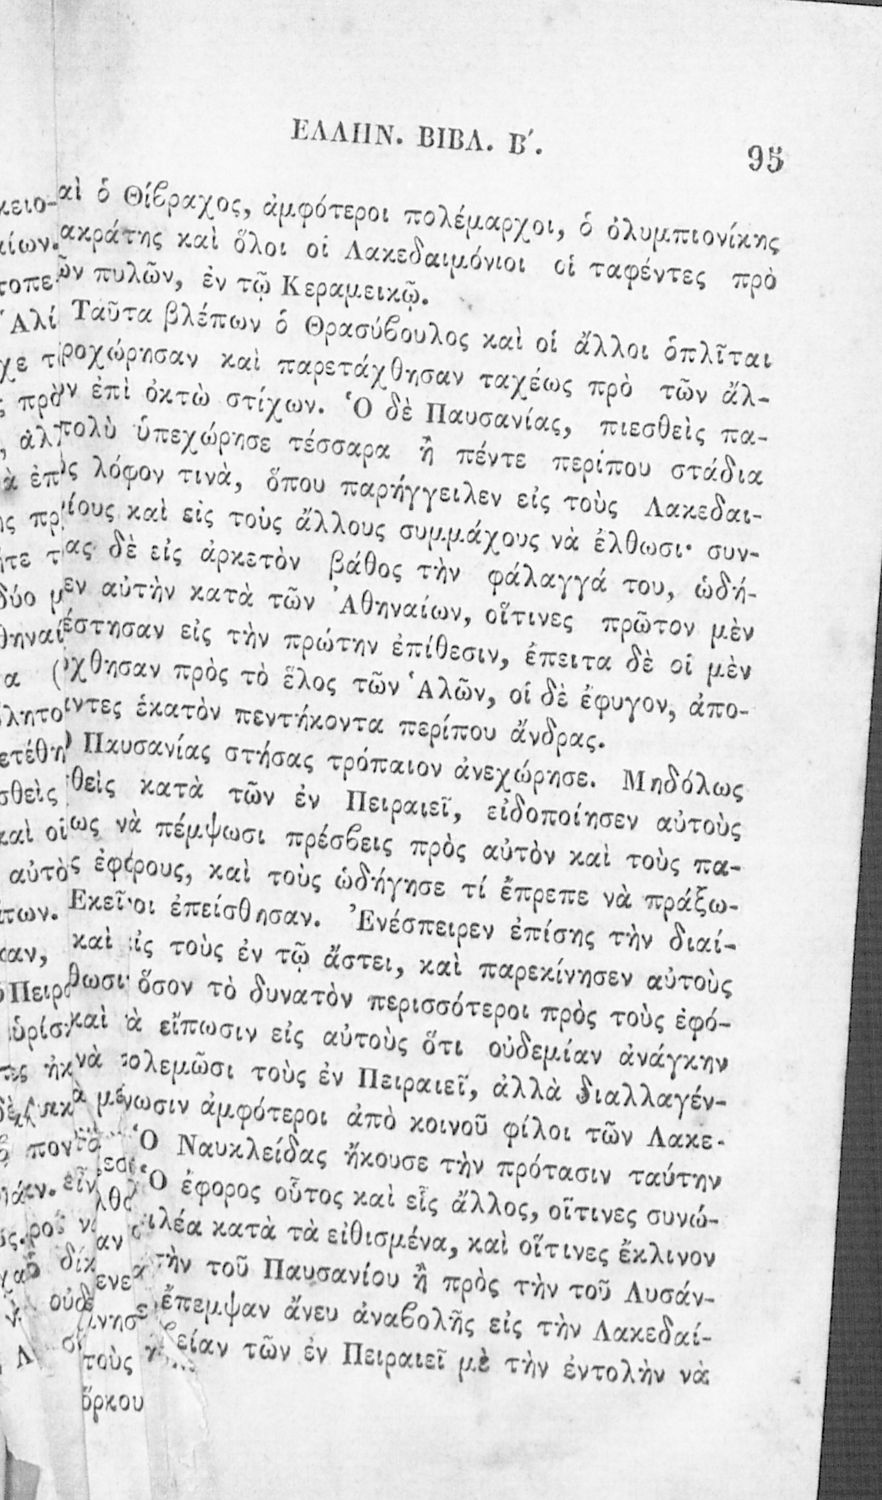 ΕΛΛΗΝ. ΒΙΒΛ. Β΄.
95
αὶ ὁ Θίβραχος, ἀμφότεροι πολέμαρχοι, ὁ ὀλυμπιονίκης
ακράτης καὶ ὅλοι οἱ Λακεδαιμόνιοι οἱ ταφέντες πρὸ
ῶν πυλῶν, ἐν τῷ Κεραμεικῷ.
Ταῦτα βλέπων ὁ Θρασύβουλος καὶ οἱ ἄλλοι ὁπλῖται
ροχώρησαν καὶ παρετάχθησαν ταχέως πρὸ τῶν ἄλ-
ν ἐπὶ ὀκτὼ στίχων. Ὁ δὲ Παυσανίας, πιεσθεὶς πα-
πολὺ ὑπεχώρησε τέσσαρα ἢ πέντε περίπου στάδια
ς λόφον τινὰ, ὅπου παρήγγειλεν εἰς τοὺς Λακεδαι-
ίους καὶ εἰς τοὺς ἄλλους συμμάχους νὰ ἐλθωσι· συν-
ας δὲ εἰς ἀρκετὸν βάθος τὴν φάλαγγά του, ὡδή-
εν αὐτὴν κατὰ τῶν Ἀθηναίων, οἵτινες πρῶτον μὲν
έστησαν εἰς τὴν πρώτην ἐπίθεσιν, ἐπειτα δὲ οἱ μὲν
χθησαν πρὸς τὸ ἕλος τῶν Ἁλῶν, οἱ δὲ ἐφυγον, ἀπο-
ντες ἑκατὸν πεντήκοντα περίπου ἄνδρας.
Παυσανίας στήσας τρόπαιον ἀνεχώρησε. Μηδόλως
θεὶς κατὰ τῶν ἐν Πειραιεῖ, εἰδοποίησεν αὐτοὺς
ως νὰ πέμψωσι πρέσβεις πρὸς αὐτὸν καὶ τοὺς πα-
ς ἐφόρους, καὶ τοὺς ὡδήγησε τί ἔπρεπε νὰ πράξω-
Εκεῖνοι ἐπείσθησαν. Ἐνέσπειρεν ἐπίσης τὴν διαί-
καὶ εἰς τοὺς ἐν τῷ ἄστει, καὶ παρεκίνησεν αὐτοὺς
θωσι ὅσον τὸ δυνατὸν περισσότεροι πρὸς τοὺς ἐφό-
καὶ ὰ εἴπωσιν εἰς αὐτοὺς ὅτι οὐδεμίαν ἀνάγκην
νὰ πολεμῶσι τοὺς ἐν Πειραιεῖ, ἀλλὰ διαλλαγέν-
μένωσιν ἀμφότεροι ἀπὸ κοινοῦ φίλοι τῶν Λακε-
Ὁ Ναυκλείδας ἤκουσε τὴν πρότασιν ταύτην
Ὁ ἐφορος οὗτος καὶ εἷς ἄλλος, οἵτινες συνώ-
ιλέα κατὰ τὰ εἰθισμένα, καὶ οἵτινες ἔκλινον
τὴν τοῦ Παυσανίου ἢ πρὸς τὴν τοῦ Λυσάν-
ἔπεμψαν ἄνευ ἀναβολῆς εἰς τὴν Λακεδαί-
βείαν τῶν ἐν Πειραιεῖ μὲ τὴν ἐντολὴν νὰ
τοὺς
ὅρκου